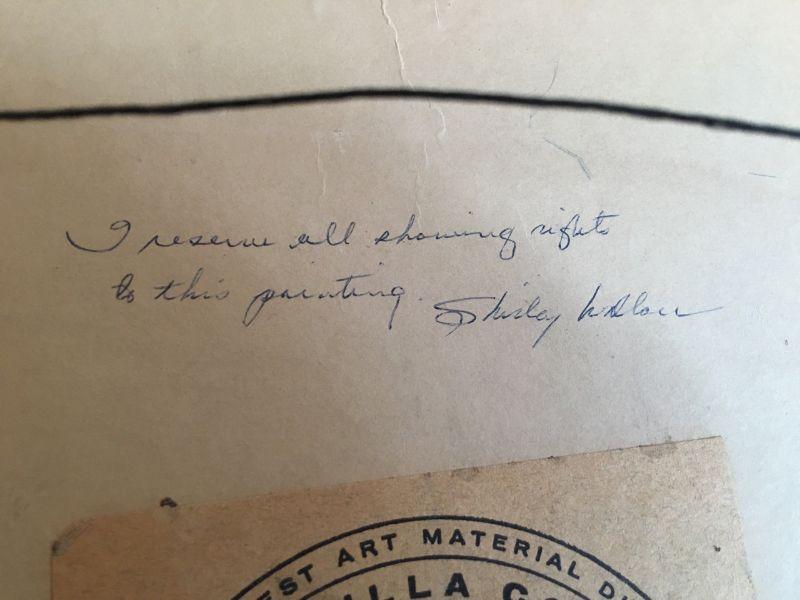 I reserve all showing rights
to this painting. Shirley
EST ART MATERIAL D
ILLA CO